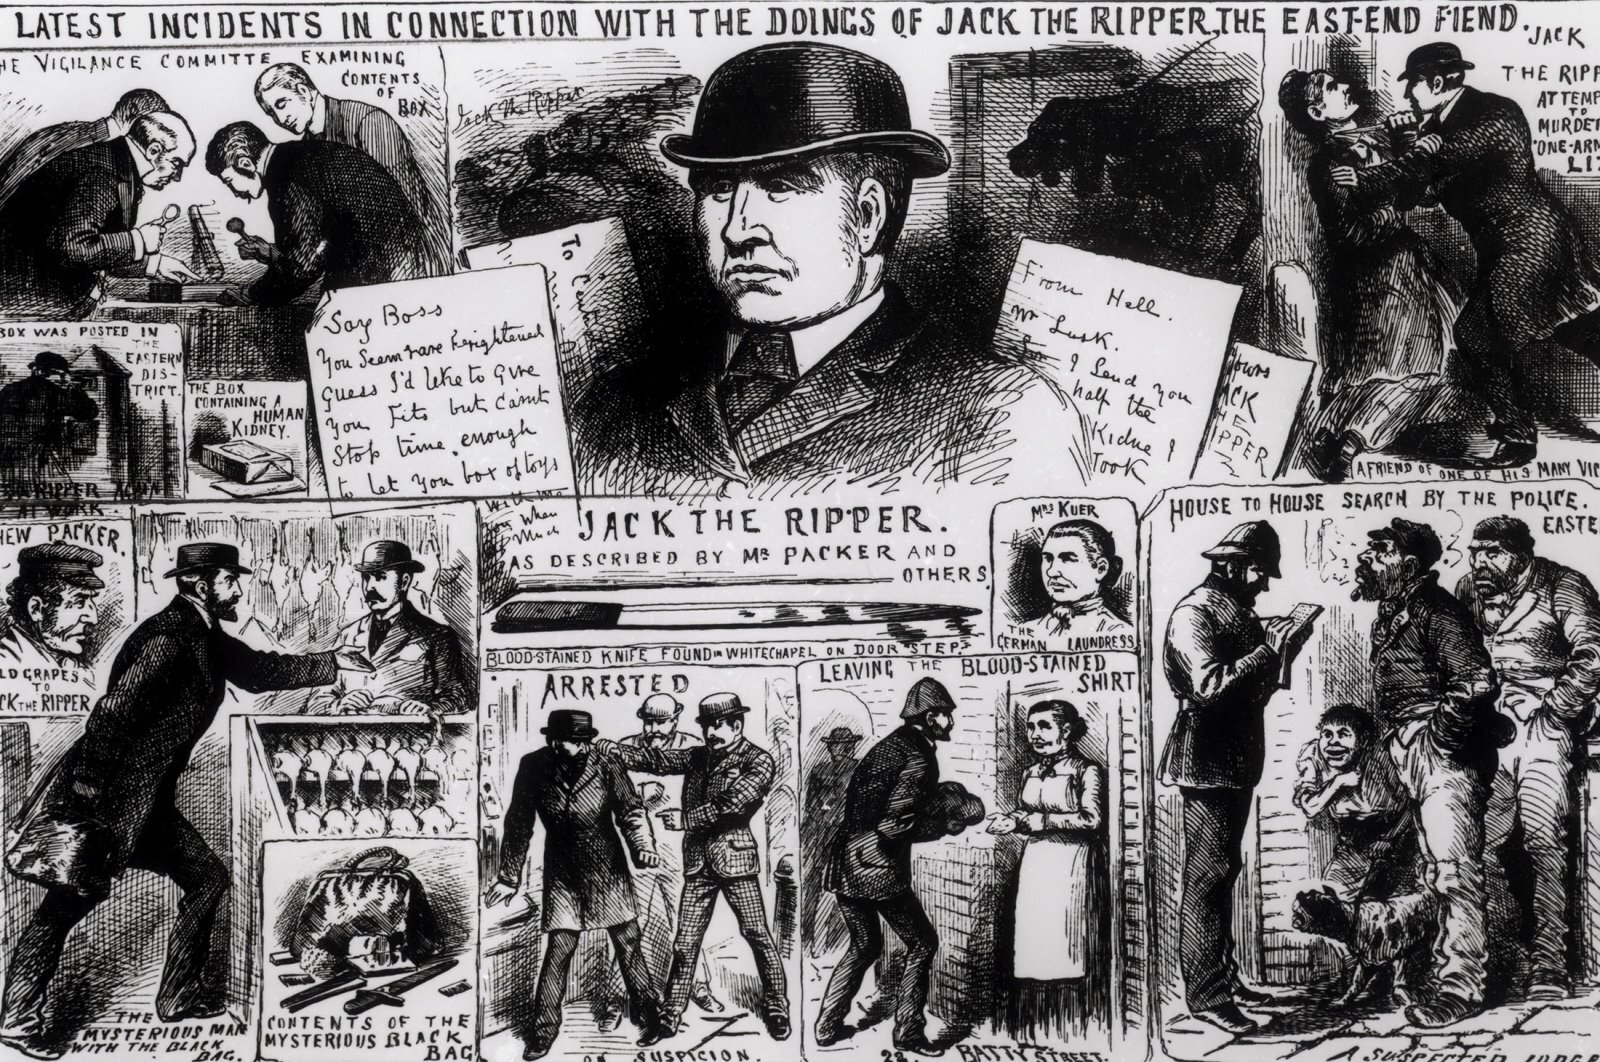 LATEST INCIDENTS IN CONNECTION WITH THE DOINGS OF JACK THE RIPPER, THE EAST-END FIEND.
HE VIGILANCE COMMITTE EXAMINING
CONTENTS
OF
BOX
BOX WAS POSTED IN
THE
EASTERN
DIS-
TRICT.
RIPPER AGAIN
AT WORK
THE BOX
CONTAINING A
HUMAN
KIDNEY.
Jack the Ripper
To
Say Boss
You Seem rare frightened
guess I'd like to give
you fits but can't
stop time enough
to let you box of toys
with me
you when
much
From Hell.
Mr Lusk.
Sor I Send you
half the
Kidne I
Took
Yours
ACK
HE
IPPER
JACK
THE RIPP
ATTEMP
TO
MURDER
"ONE-ARM
LIZ
A FRIEND OF ONE OF HIS MANY VIC
HEW PACKER.
LD GRAPES
TO
CK THE RIPPER
THE
MYSTERIOUS MAN
WITH THE BLACK
BAG.
CONTENTS OF THE
MYSTERIOUS BLACK
BAG
JACK THE RIPPER.
AS DESCRIBED BY MR PACKER AND
OTHERS
BLOOD-STAINED KNIFE FOUND IN WHITECHAPEL ON DOOR STEP
MRS KUER
THE
GERMAN LAUNDRESS
ARRESTED
ON SUSPICION.
LEAVING THE BLOOD-STAINED
SHIRT
22. BATTY STREET.
HOUSE TO HOUSE SEARCH BY THE POLICE.
EASTE
A SUSPECTED